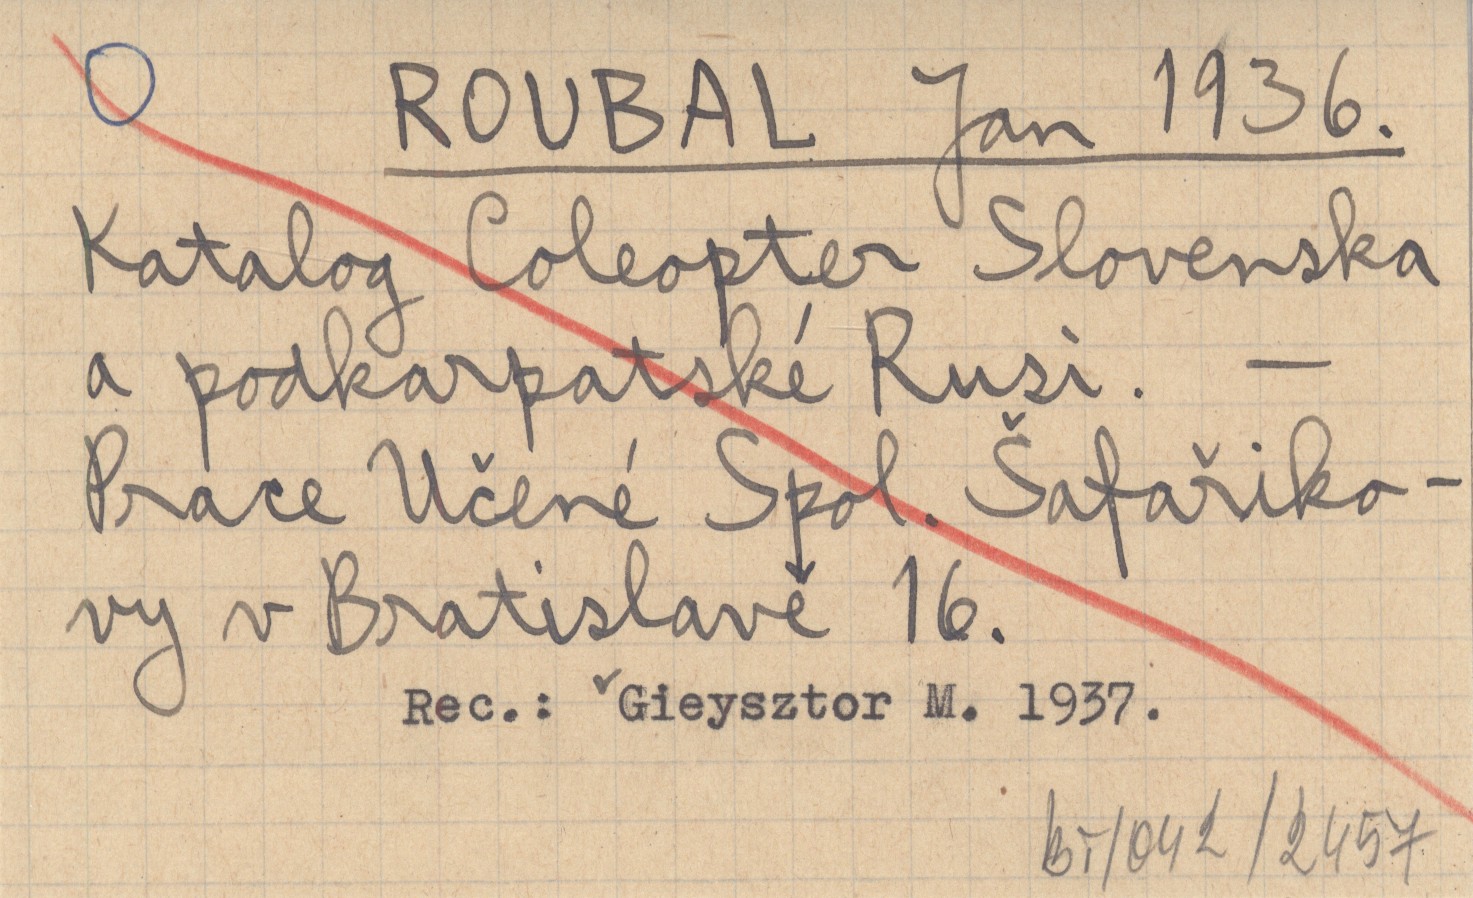 ROUBAL Jan 1936.
Katalog Coleopter Slovenska
a podkarpatské Rusi. —
Prace Učené Spol. Šafařiko-
vy v Bratislavě 16.
Rec.: Gieysztor M. 1937.
/042/2457